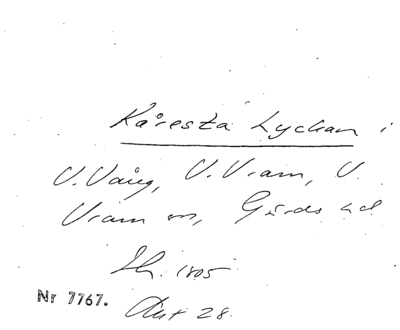 Kåresta Lyckan i
V. Vång, V. Vram, V.
Vram sn, Gärds hd
Sk. 1805
Akt 28.
Nr 7767.